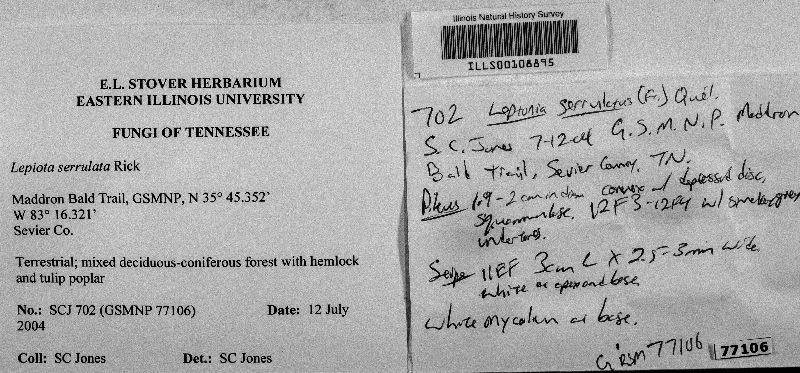 E.L. STOVER HERBARIUM
EASTERN ILLINOIS UNIVERSITY
FUNGI OF TENNESSEE
Lepiota serrulata Rick
Maddron Bald Trail, GSMNP, N 35° 45.352'
W 83° 16.321'
Sevier Co.
Terrestrial; mixed deciduous-coniferous forest with hemlock
and tulip poplar
No.: SCJ 702 (GSMNP 77106) Date: 12 July
2004
Coll: SC Jones Det.: SC Jones
Illinois Natural History Survey
ILLS00108895
702 Leptonia serrulatus (Fr.) Quél.
S.C. Jones 7-12-04 G.S.M.N.P. Maddron
Bald Trail, Sevier County, TN.
Pileus 1.9-2 cm in diam convex w/ depressed disc,
squamulose, 12F3-12F4 w/ grey
undertones.
Stipe 11EF 3cm L X 2.5-3mm wide
white at apex and base
white mycelium at base.
GRSM 77106
77106